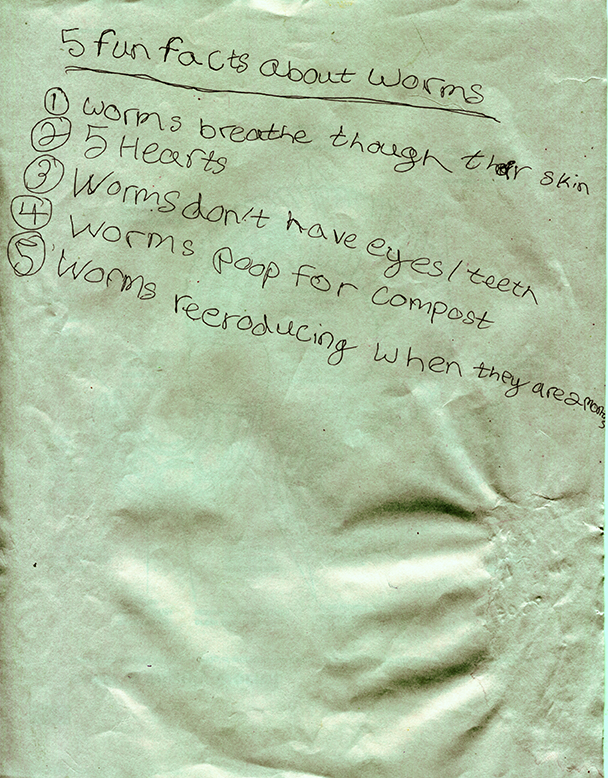 5 fun facts about worms
① worms breathe though their skin
② 5 Hearts
③ Worms don't have eyes/teeth
④ Worms poop for compost
⑤ Worms reeroducing when they are 2